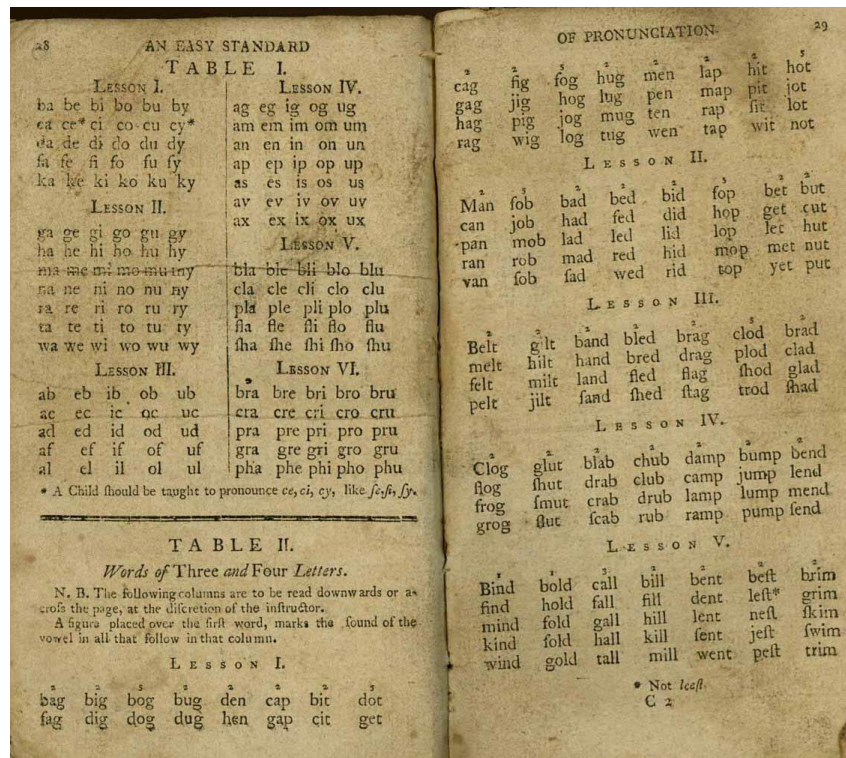 28
AN EASY STANDARD
TABLE I.
LESSON I.
ba be bi bo bu by
ca ce* ci co cu cy*
da de di do du dy
fa fe fi fo fu fy
ka ke ki ko ku ky
LESSON II.
ga ge gi go gu gy
ha he hi ho hu hy
ma me mi mo mu my
na ne ni no nu ny
ra re ri ro ru ry
ta te ti to tu ty
wa we wi wo wu wy
LESSON III.
ab eb ib ob ub
ac ec ic oc uc
ad ed id od ud
af ef if of uf
al el il ol ul
LESSON IV.
ag eg ig og ug
am em im om um
an en in on un
ap ep ip op up
as es is os us
av ev iv ov uv
ax ex ix ox ux
LESSON V.
bla ble bli blo blu
cla cle cli clo clu
pla ple pli plo plu
fla fle fli flo flu
ſha ſhe ſhi ſho ſhu
LESSON VI.
bra bre bri bro bru
cra cre cri cro cru
pra pre pri pro pru
gra gre gri gro gru
pha phe phi pho phu
* A Child ſhould be taught to pronounce ce, ci, cy, like ſe, ſi, ſy.
TABLE II.
Words of Three and Four Letters.
N. B. The following columns are to be read downwards or a-
croſs the page, at the diſcretion of the inſtructor.
A figure placed over the firſt word, marks the ſound of the
vowel in all that follow in that column.
LESSON I.
2 2 5 2 2 2 2 5
bag big bog bug den cap bit dot
fag dig dog dug hen gap cit get
OF PRONUNCIATION.
29
2 2 5 2 2 2 2 5
cag fig fog hug men lap hit hot
gag jig hog lug pen map pit jot
hag pig jog mug ten rap ſit lot
rag wig log tug wen tap wit not
LESSON II.
2 5 2 2 2 5 2 2
Man ſob bad bed bid fop bet but
can job had fed did hop get cut
pan mob lad led lid lop let hut
ran rob mad red hid mop met nut
van fob ſad wed rid top yet put
LESSON III.
2 2 2 2 2 5 2
Belt gilt band bled brag clod brad
melt hilt hand bred drag plod clad
felt milt land fled flag ſhod glad
pelt jilt ſand ſhed ſtag trod ſhad
LESSON IV.
2 2 2 2 2 2 2
Clog glut blab chub damp bump bend
flog ſhut drab club camp jump lend
frog ſmut crab drub lamp lump mend
grog ſlut ſcab rub ramp pump ſend
LESSON V.
Bind bold call bill bent beſt brim
find hold fall fill dent left* grim
mind fold gall hill lent neſt ſkim
kind ſold hall kill ſent jeſt ſwim
wind gold tall mill went peſt trim
* Not leeft.
C 2